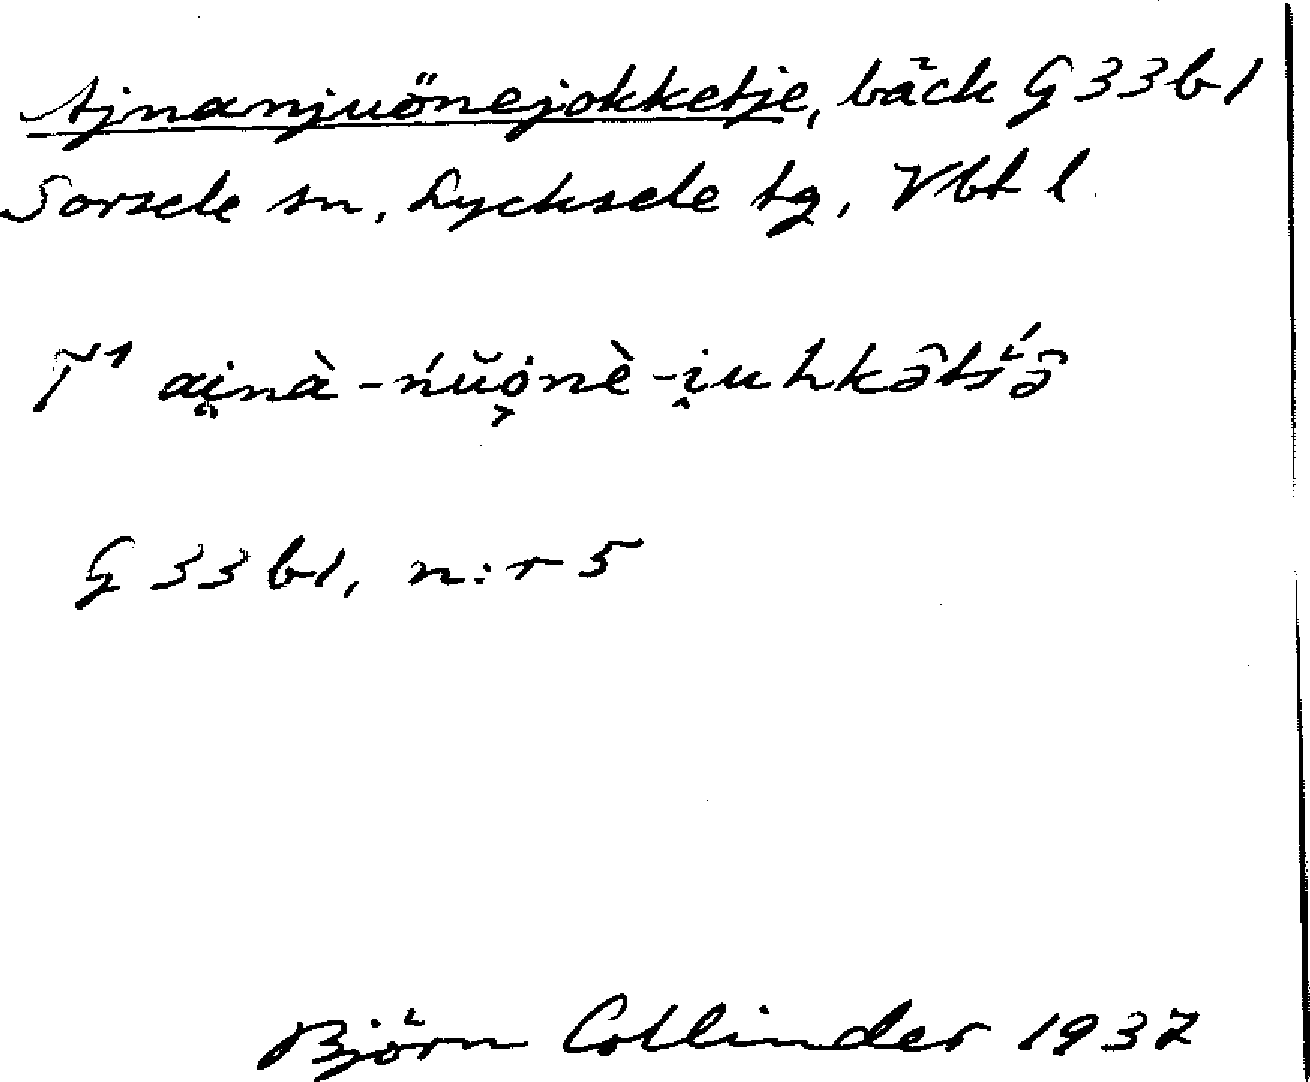 Ajnanjuönejokketje, bäck G 33 b 1
Sorsele sn, Lycksele tg, Vbt l
T¹ ai̯nà-ńŭo̜nè-i̯uhkə̑tś̌ə̑
G 33 b 1, n:r 5
Björn Collinder 1937